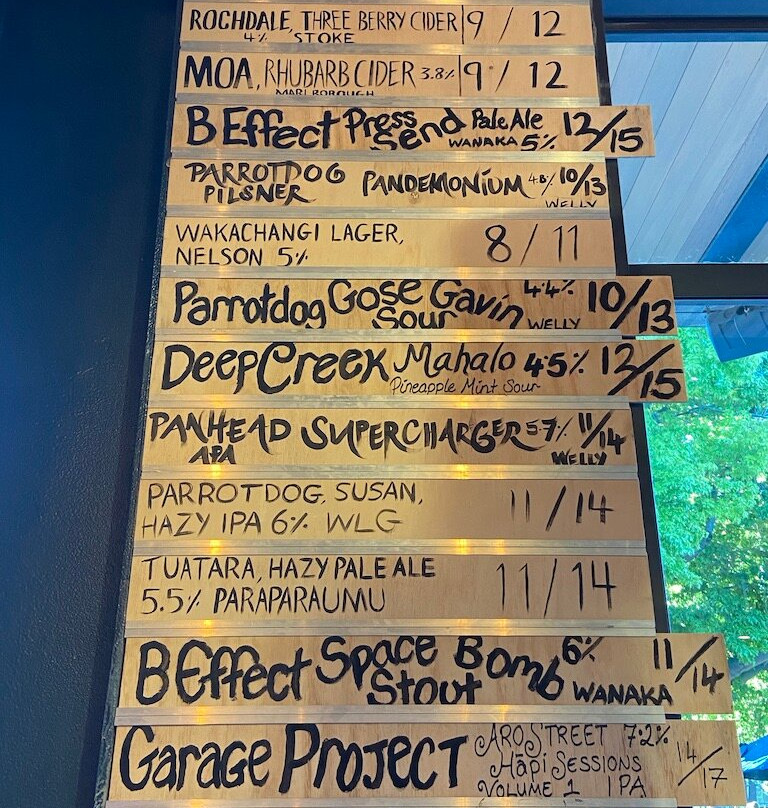 ROCHDALE, THREE BERRY CIDER 9 / 12
4% STOKE
MOA, RHUBARB CIDER 3.8% 9 / 12
MARLBOROUGH
B Effect Press Send Pale Ale 12/15
WANAKA 5%
PARROTDOG PANDEMONIUM 4.8% 10/13
PILSNER WELLY
WAKACHANGI LAGER, 8 / 11
NELSON 5%
Parrotdog Gose Gavin 4.4% 10/13
Sour WELLY
Deep Creek Mahalo 4.5% 12/15
Pineapple Mint Sour
PANHEAD SUPERCHARGER 5.7% 11/14
APA WELLY
PARROTDOG, SUSAN, 11 / 14
HAZY IPA 6% WLG
TUATARA, HAZY PALE ALE 11 / 14
5.5% PARAPARAUMU
B Effect Space Bomb 6% 11/14
Stout WANAKA
Garage Project ARO STREET 7.2% 14/17
Hāpi SESSIONS
VOLUME 1 IPA